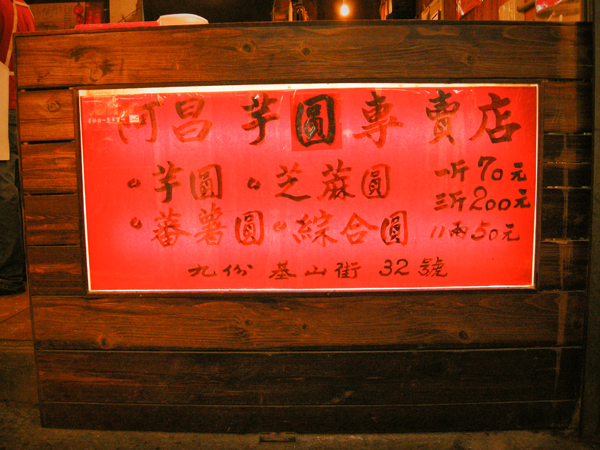 阿昌芋圓專賣店
芋圓 芝蔴圓 一斤70元
三斤200元
蕃薯圓 綜合圓 11兩50元
九份基山街32號